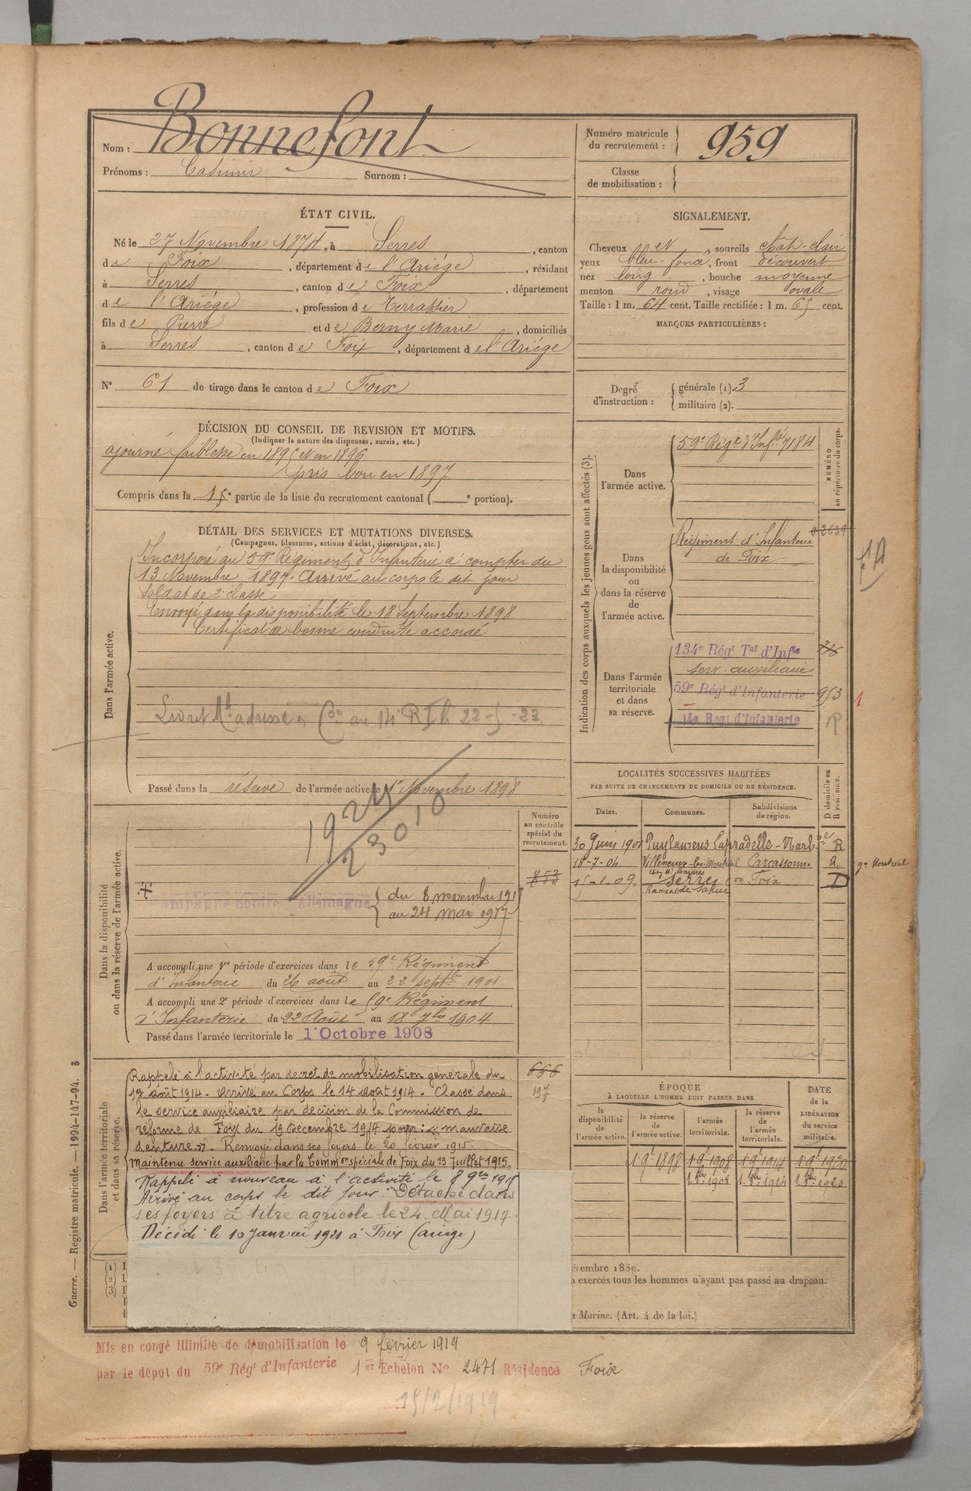 Nom : Bonnefont
Prénoms : Casimir Surnom :
Numéro matricule du recrutement : 959
Classe de mobilisation :
ÉTAT CIVIL.
Né le 27 Novembre 1874, à Serres, canton
de Foix, département de l'Ariège, résidant
à Serres, canton de Foix, département
de l'Ariège, profession de Terrassier
fils de Pierre et de Berny Marie, domiciliés
à Serres, canton de Foix, département de l'Ariège
N° 61 de tirage dans le canton de Foix
SIGNALEMENT.
Cheveux sourcils chât-clair
yeux bleu-foncé, front découvert
nez long, bouche moyenne
menton rond, visage ovale
Taille : 1 m. 64 cent. Taille rectifiée : 1 m. 65 cent.
MARQUES PARTICULIÈRES :
Degré d'instruction : générale (1). 3
militaire (2).
DÉCISION DU CONSEIL DE REVISION ET MOTIFS.
(Indiquer la nature des dispenses, sursis, etc.)
ajourné faiblesse en 1895 et en 1896
pris bon en 1897
Compris dans la 1re partie de la liste du recrutement cantonal ( e portion).
DÉTAIL DES SERVICES ET MUTATIONS DIVERSES.
(Campagnes, blessures, actions d'éclat, décorations, etc.)
Dans l'armée active.
Incorporé au 59e Régiment d'Infanterie à compter du
13 Novembre 1897. Arrivé au corps le dit jour
Soldat de 2e classe.
Envoyé dans la disponibilité le 18 Septembre 1898
Certificat de bonne conduite accordé
Livret Mle adressé au 14 R I le 22-5-22
Passé dans la réserve de l'armée active le 1er Novembre 1898
Indication des corps auxquels les jeunes gens sont affectés (3).
NUMÉRO au répertoire du corps.
Dans l'armée active.
59e Régt d'Infie 7184
Dans la disponibilité ou dans la réserve de l'armée active.
Régiment d'Infanterie
de Foix
Dans l'armée territoriale et dans sa réserve.
134e Régt Tal d'Infie
serv. auxiliaire
59e Régt d'Infanterie 953
14e Régt d'Infanterie
1
LOCALITÉS SUCCESSIVES HABITÉES
PAR SUITE DE CHANGEMENTS DE DOMICILE OU DE RÉSIDENCE.
Dates. Communes. Subdivisions de région. D domicile ou R résidence.
30 Juin 1901 Puylaurens Lapradelle - Narbne R
Carcassonne R
15-1-09 Serres Foix D
Numéro au contrôle spécial du recrutement.
853
1924
23010
Dans la disponibilité ou dans la réserve de l'armée active.
Campagne contre l'Allemagne
au 24 mai 1917
A accompli une 1re période d'exercices dans le 59e Régiment
d'Infanterie du 26 août au 22 septbre 1901
A accompli une 2e période d'exercices dans le 59e Régiment
d'Infanterie du 22 Août au 18 7bre 1904
Passé dans l'armée territoriale le 1er Octobre 1908
Dans l'armée territoriale et dans sa réserve.
666
197
Rappelé à l'activité par décret de mobilisation générale du
1er août 1914. Arrivé au Corps le 14 août 1914. Classé dans
le service auxiliaire par décision de la Commission de
réforme de Foix du 19 décembre 1914 pour : « mauvaise
denture ». Renvoyé dans ses foyers le 20 février 1915.
Maintenu service auxiliaire par la Common spéciale de Foix du 13 Juillet 1915.
Rappelé à nouveau à l'activité le 8 9bre 1915
Arrivé au corps le dit jour. Détaché dans
ses foyers à titre agricole le 24 Mai 1917.
Décédé le 10 Janvier 1921 à Foix (Ariège)
ÉPOQUE
À LAQUELLE L'HOMME DOIT PASSER DANS
la disponibilité de l'armée active. la réserve de l'armée active. l'armée territoriale. la réserve de l'armée territoriale.
DATE de la LIBÉRATION du service militaire.
(1)
(2)
(3)
écembre 1889.
exercés tous les hommes n'ayant pas passé au drapeau.
Marine. (Art. 4 de la loi.)
Guerre. — Registre matricule. — 1994-147-04.
Mis en congé illimité de démobilisation le 9 février 1919
par le dépôt du 59e Régt d'Infanterie 1er Échelon N° 2471 Résidence Foix
15/2/1919